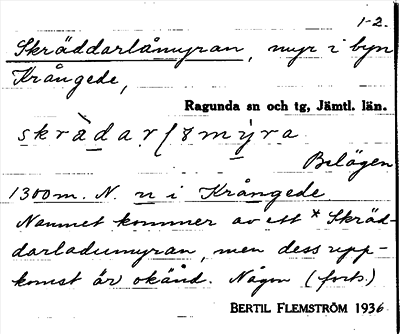 1-2.
Skräddarlåmyran, myr i byn
Krångede,
Ragunda sn och tg, Jämtl. län.
Belägen
1300 m. N. n i Krångede
Namnet kommer av ett * Skräd-
darladumyran, men dess upp-
komst är okänd. Någon (forts.)
BERTIL FLEMSTRÖM 1936